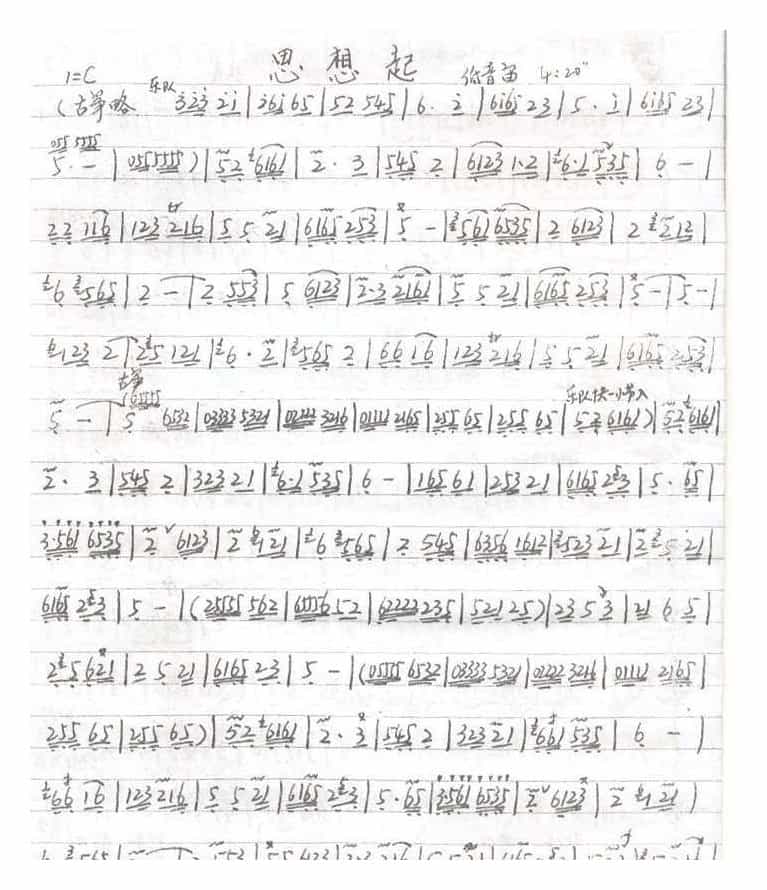 思想起
1=C 乐队 低音笛 4:20"
(古筝略 323 21 | 2616 65 | 52 545 | 6· 2 | 6165 23 | 5· 1 | 6165 23 |
055 5555
5· - | 055 5555 ) | 52 6161 | 2· 3 | 545 2 | 6123 1·2 | 6·1 535 | 6 - |
22 116 | 123 216 | 5 5 21 | 6165 253 | 5 - | 561 6535 | 2 6123 | 2 212 |
6 565 | 2 - | 2 553 | 5 6123 | 2·3 2161 | 5 5 21 | 6165 253 | 5 - | 5 - |
123 2 | 25 121 | 6· 2 | 565 2 | 66 16 | 123 216 | 5 5 21 | 6165 253 |
古筝 乐队快一小节入
(65555
5 - | 5 6532 | 03333 5321 | 02222 3216 | 01111 2165 | 255 65 | 255 65 | 52 6161 ) | 52 6161 |
2· 3 | 545 2 | 323 21 | 6·1 535 | 6 - | 165 61 | 253 21 | 6165 253 | 5· 65 |
3·561 6535 | 2 6123 | 2 21 | 6 565 | 2 545 | 6356 1612 | 523 21 | 2 5 21 |
6165 253 | 5 - | (25555 562 | 65556 52 | 62223 235 | 521 25 ) | 23 5 3 | 21 6 5 |
2 5 621 | 2 5 21 | 6165 23 | 5 - | (05555 6532 | 03333 5321 | 02222 3216 | 01111 2165 |
255 65 | 255 65 ) | 52 6161 | 2· 3 | 545 2 | 323 21 | 661 535 | 6 - |
66 16 | 123 216 | 5 5 21 | 6165 253 | 5· 65 | 3561 6535 | 2 6123 | 2 21 |